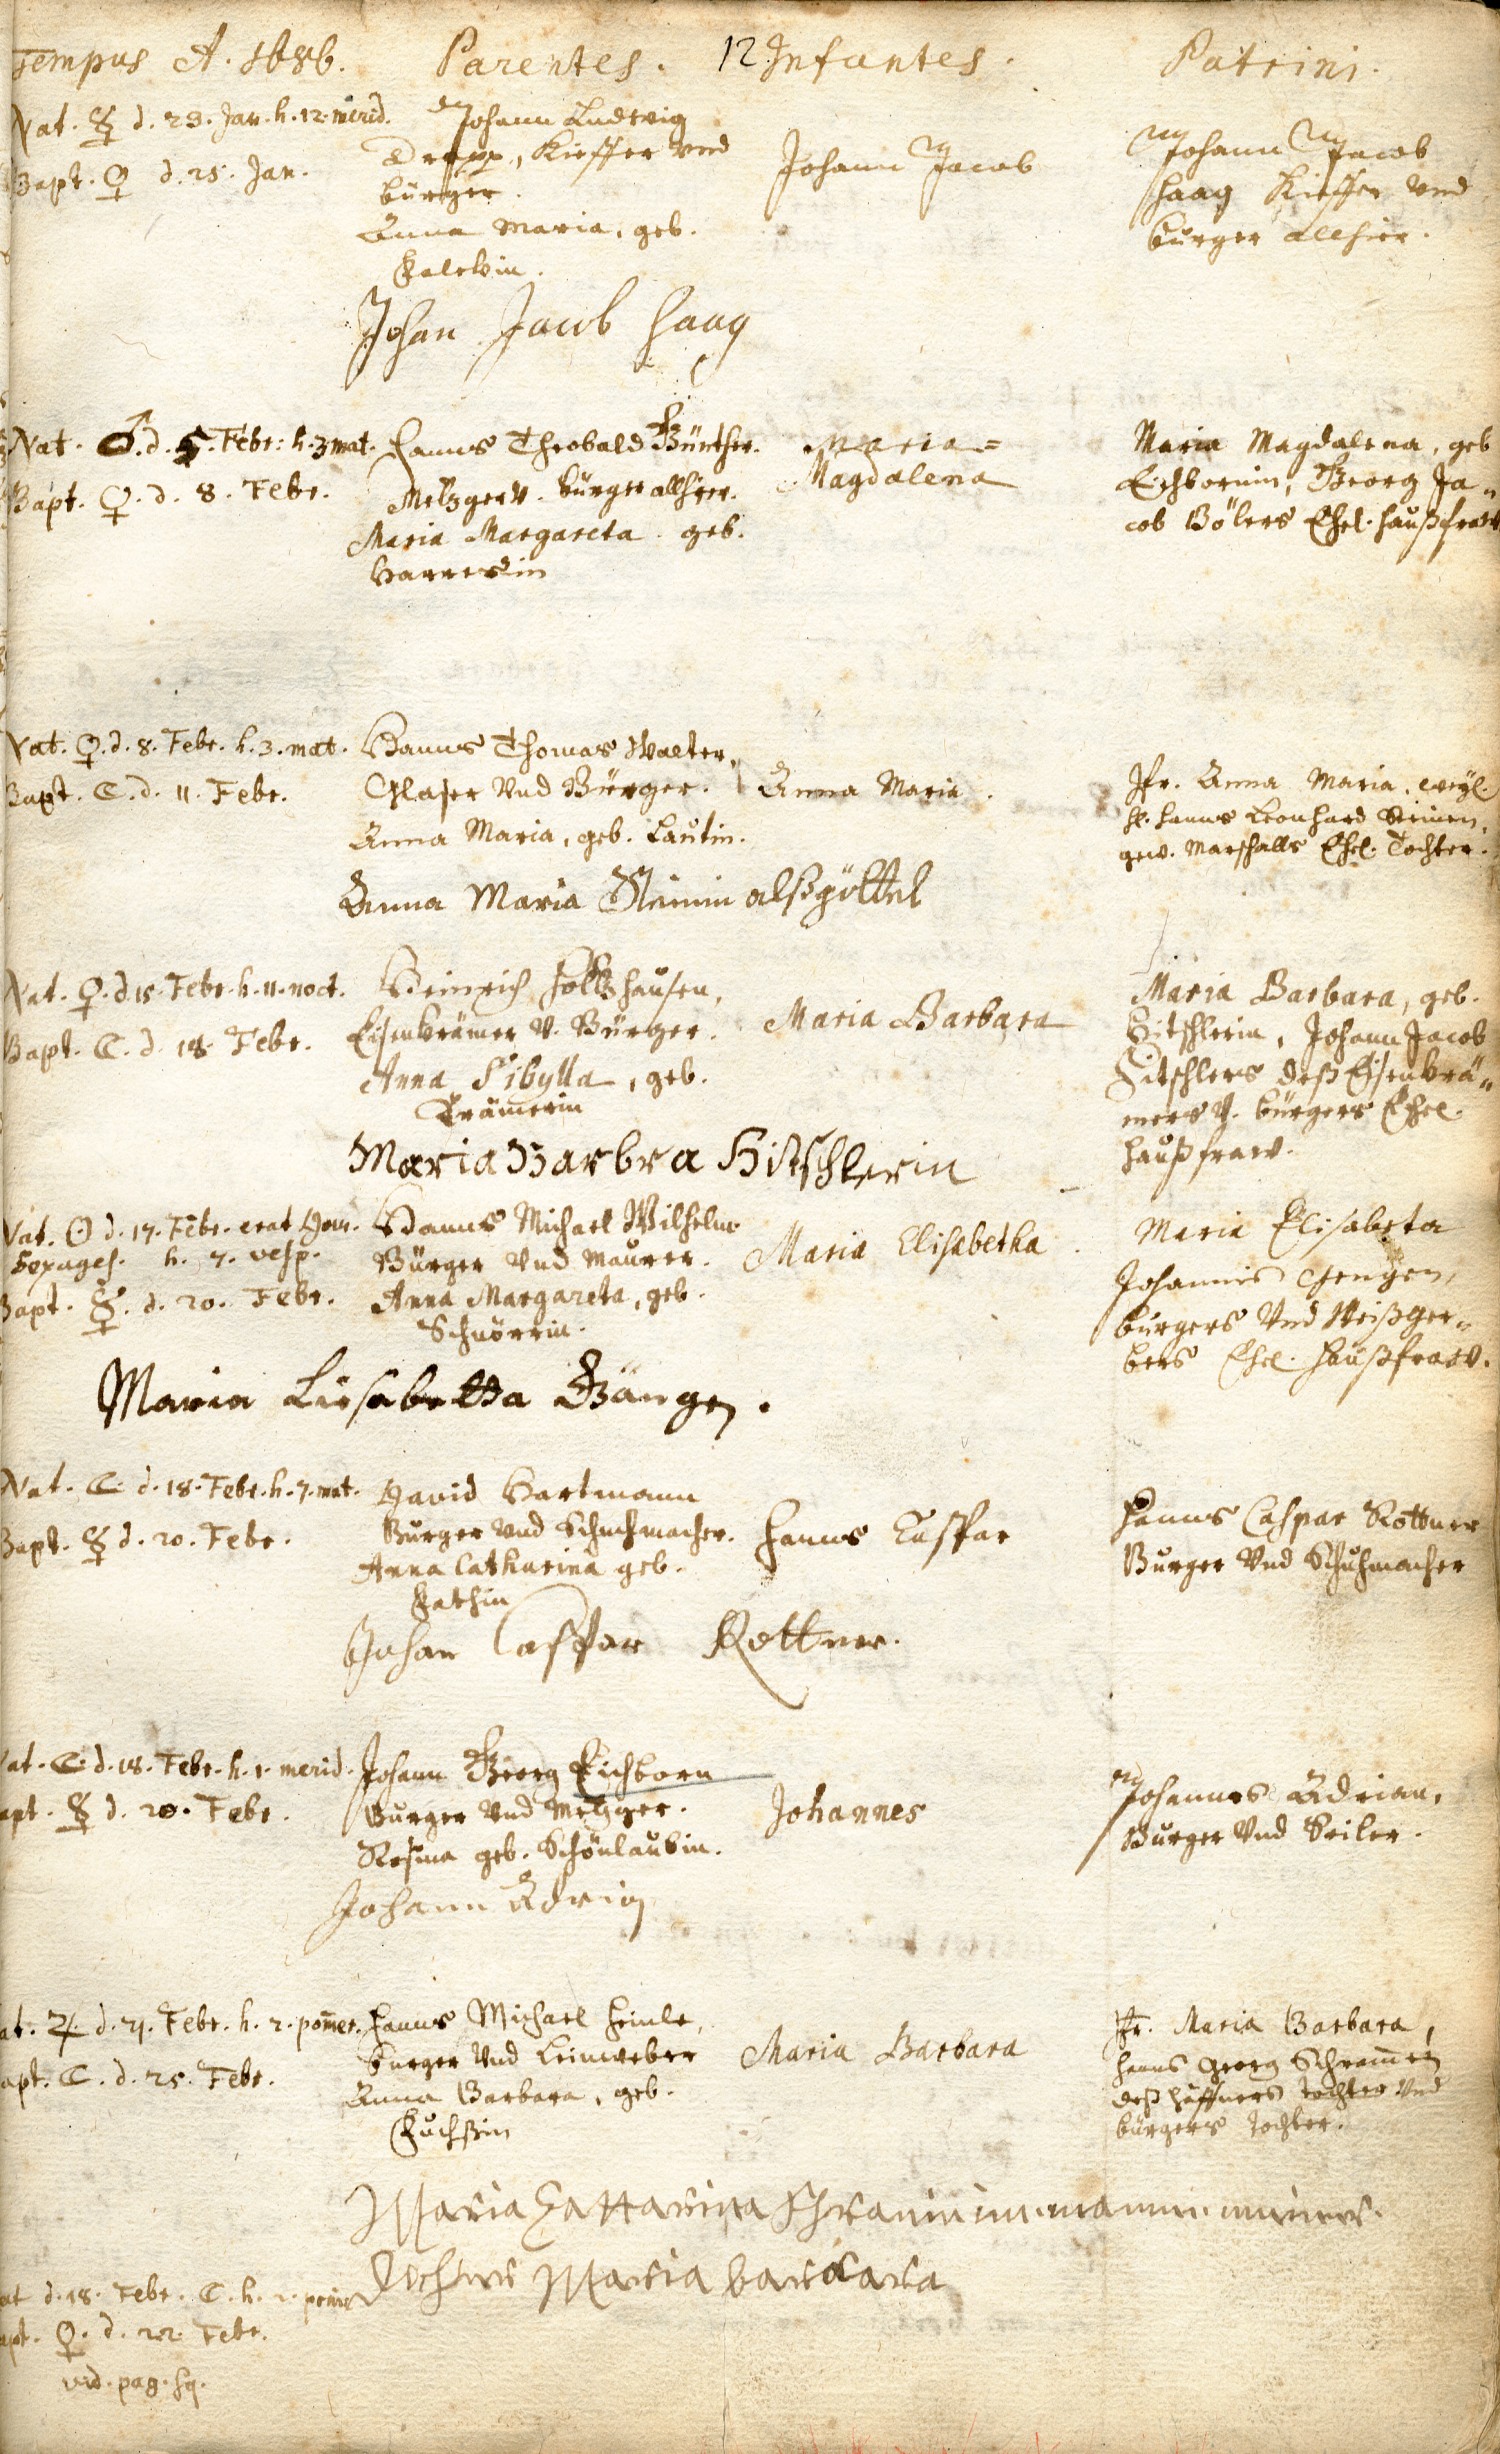 Tempus A. 1686. Parentes. 12 Infantes. Patrini.
Nat. ☿ d. 23. Jan. h. 12. merid.
Bapt. ♀ d. 25. Jan.
Johann Ludwig
Trapp, Kieffer vnd
burger.
Anna Maria, geb.
Johann Jacob
Johann Jacob
Haag Kieffer vnd
burger allhier.
Johan Jacob Haag
Nat. ♂. d. 5. Febr: h. 3 mat.
Bapt. ♀. d. 8. Febr.
Hanns Theobald Günther.
Metzger v. burger allhier.
Maria Margareta geb.
Maria=
Magdalena
Maria Magdalena, geb
Eichbornin, Georg Ja=
cob Bölers Ehel. haußfraw
Nat. ♀. d. 8. Febr. h. 3. mat.
Bapt. ☾. d. 11. Febr.
Hanns Thomas Walter,
Glaser vnd Bürger.
Anna Maria, geb. Lautin.
Anna Maria.
Jfr. Anna Maria, weyl.
H. Hanns Leonhard Steinen,
gew. Marschalls Ehel. Tochter.
Anna Maria Steinin alß göttel
Nat. ♀. d. 15. Febr. h. 11. noct.
Bapt. ☾. d. 18. Febr.
Heinrich Holtzhausen,
Eisenkrämer v. Bürger.
Anna Sibylla, geb.
Krämerin
Maria Barbara
Maria Barbara, geb.
Hitschlerin, Johann Jacob
Hitschlers deß Eisenkrä=
mers v. bürgers Ehel.
haußfraw.
Maria Barbra Hitschlerin
Nat. ☉ d. 17. Febr. erat Dom.
Sexages. h. 7. vesp.
Bapt. ☿. d. 20. Febr.
Hanns Michael Wilhelm
Bürger vnd Maurer.
Anna Margareta, geb.
Schnörrin.
Maria Elisabetha.
Maria Elisabeta
Johannis Gengen,
burgers vnd Weißger=
bers Ehel. haußfraw.
Maria Liesabetta Gängen.
Nat. ☾ d. 18. Febr. h. 7. mat.
Bapt. ☿ d. 20. Febr.
David Hartmann
Burger vnd Schuhmacher.
Anna Catharina geb.
Hanns Caspar
Hanns Caspar Rottner
Burger vnd Schuhmacher
Johan Caspar Rottner.
Nat. ☾ d. 18. Febr. h. 1. merid.
apt. ☿ d. 20. Febr.
Johann Georg Eichborn
Burger vnd Metzger.
Rosina geb. Schönlaubin.
Johannes
Johannes Adrian,
Burger vnd Seiler.
Johann Adrian
at. ♃. d. 21. Febr. h. 2. pomer.
apt. ☾. d. 25. Febr.
Hanns Michael Heinle,
Burger vnd Leinweber
Anna Barbara, geb.
Fuchßin
Maria Barbara
Jfr. Maria Barbara,
Hanns Georg Schrammen
deß Haffners Tochter vnd
bürgers Tochter.
Maria Cattarina Schramin im namen meiner
Dochter Maria barbara
at d. 18. Febr. ☾. h. 2.
apt. ♀. d. 22. Febr.
vid. pag. sq.